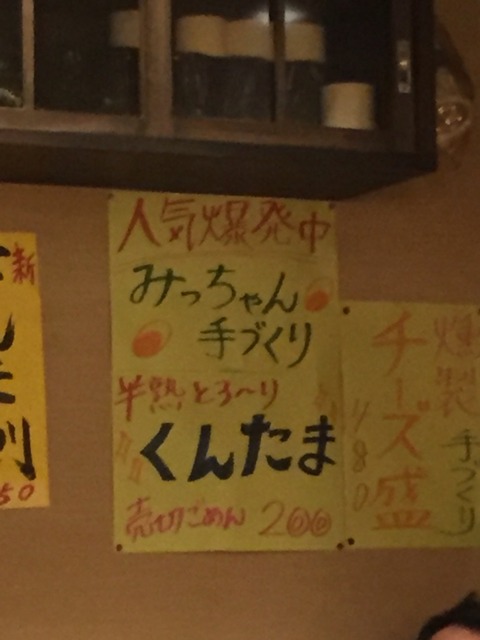 人気爆発中
みっちゃん
手づくり
半熟とろ〜り
くんたま
売切ごめん 200
燻製
手づくり
チーズ盛
480
新
刺
50